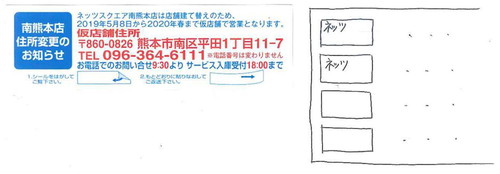 南熊本店
住所変更の
お知らせ
ネッツスクエア南熊本店は店舗建て替えのため、
2019年5月8日から2020年春まで仮店舗で営業となります。
仮店舗住所
〒860-0826 熊本市南区平田1丁目11-7
TEL 096-364-6111 ※電話番号は変わりません
お電話でのお問い合せ9:30より サービス入庫受付18:00まで
1.シールをはがして
ご覧下さい。
2.もとどおりに貼りなおして
ご返送下さい。
ネッツ
ネッツ